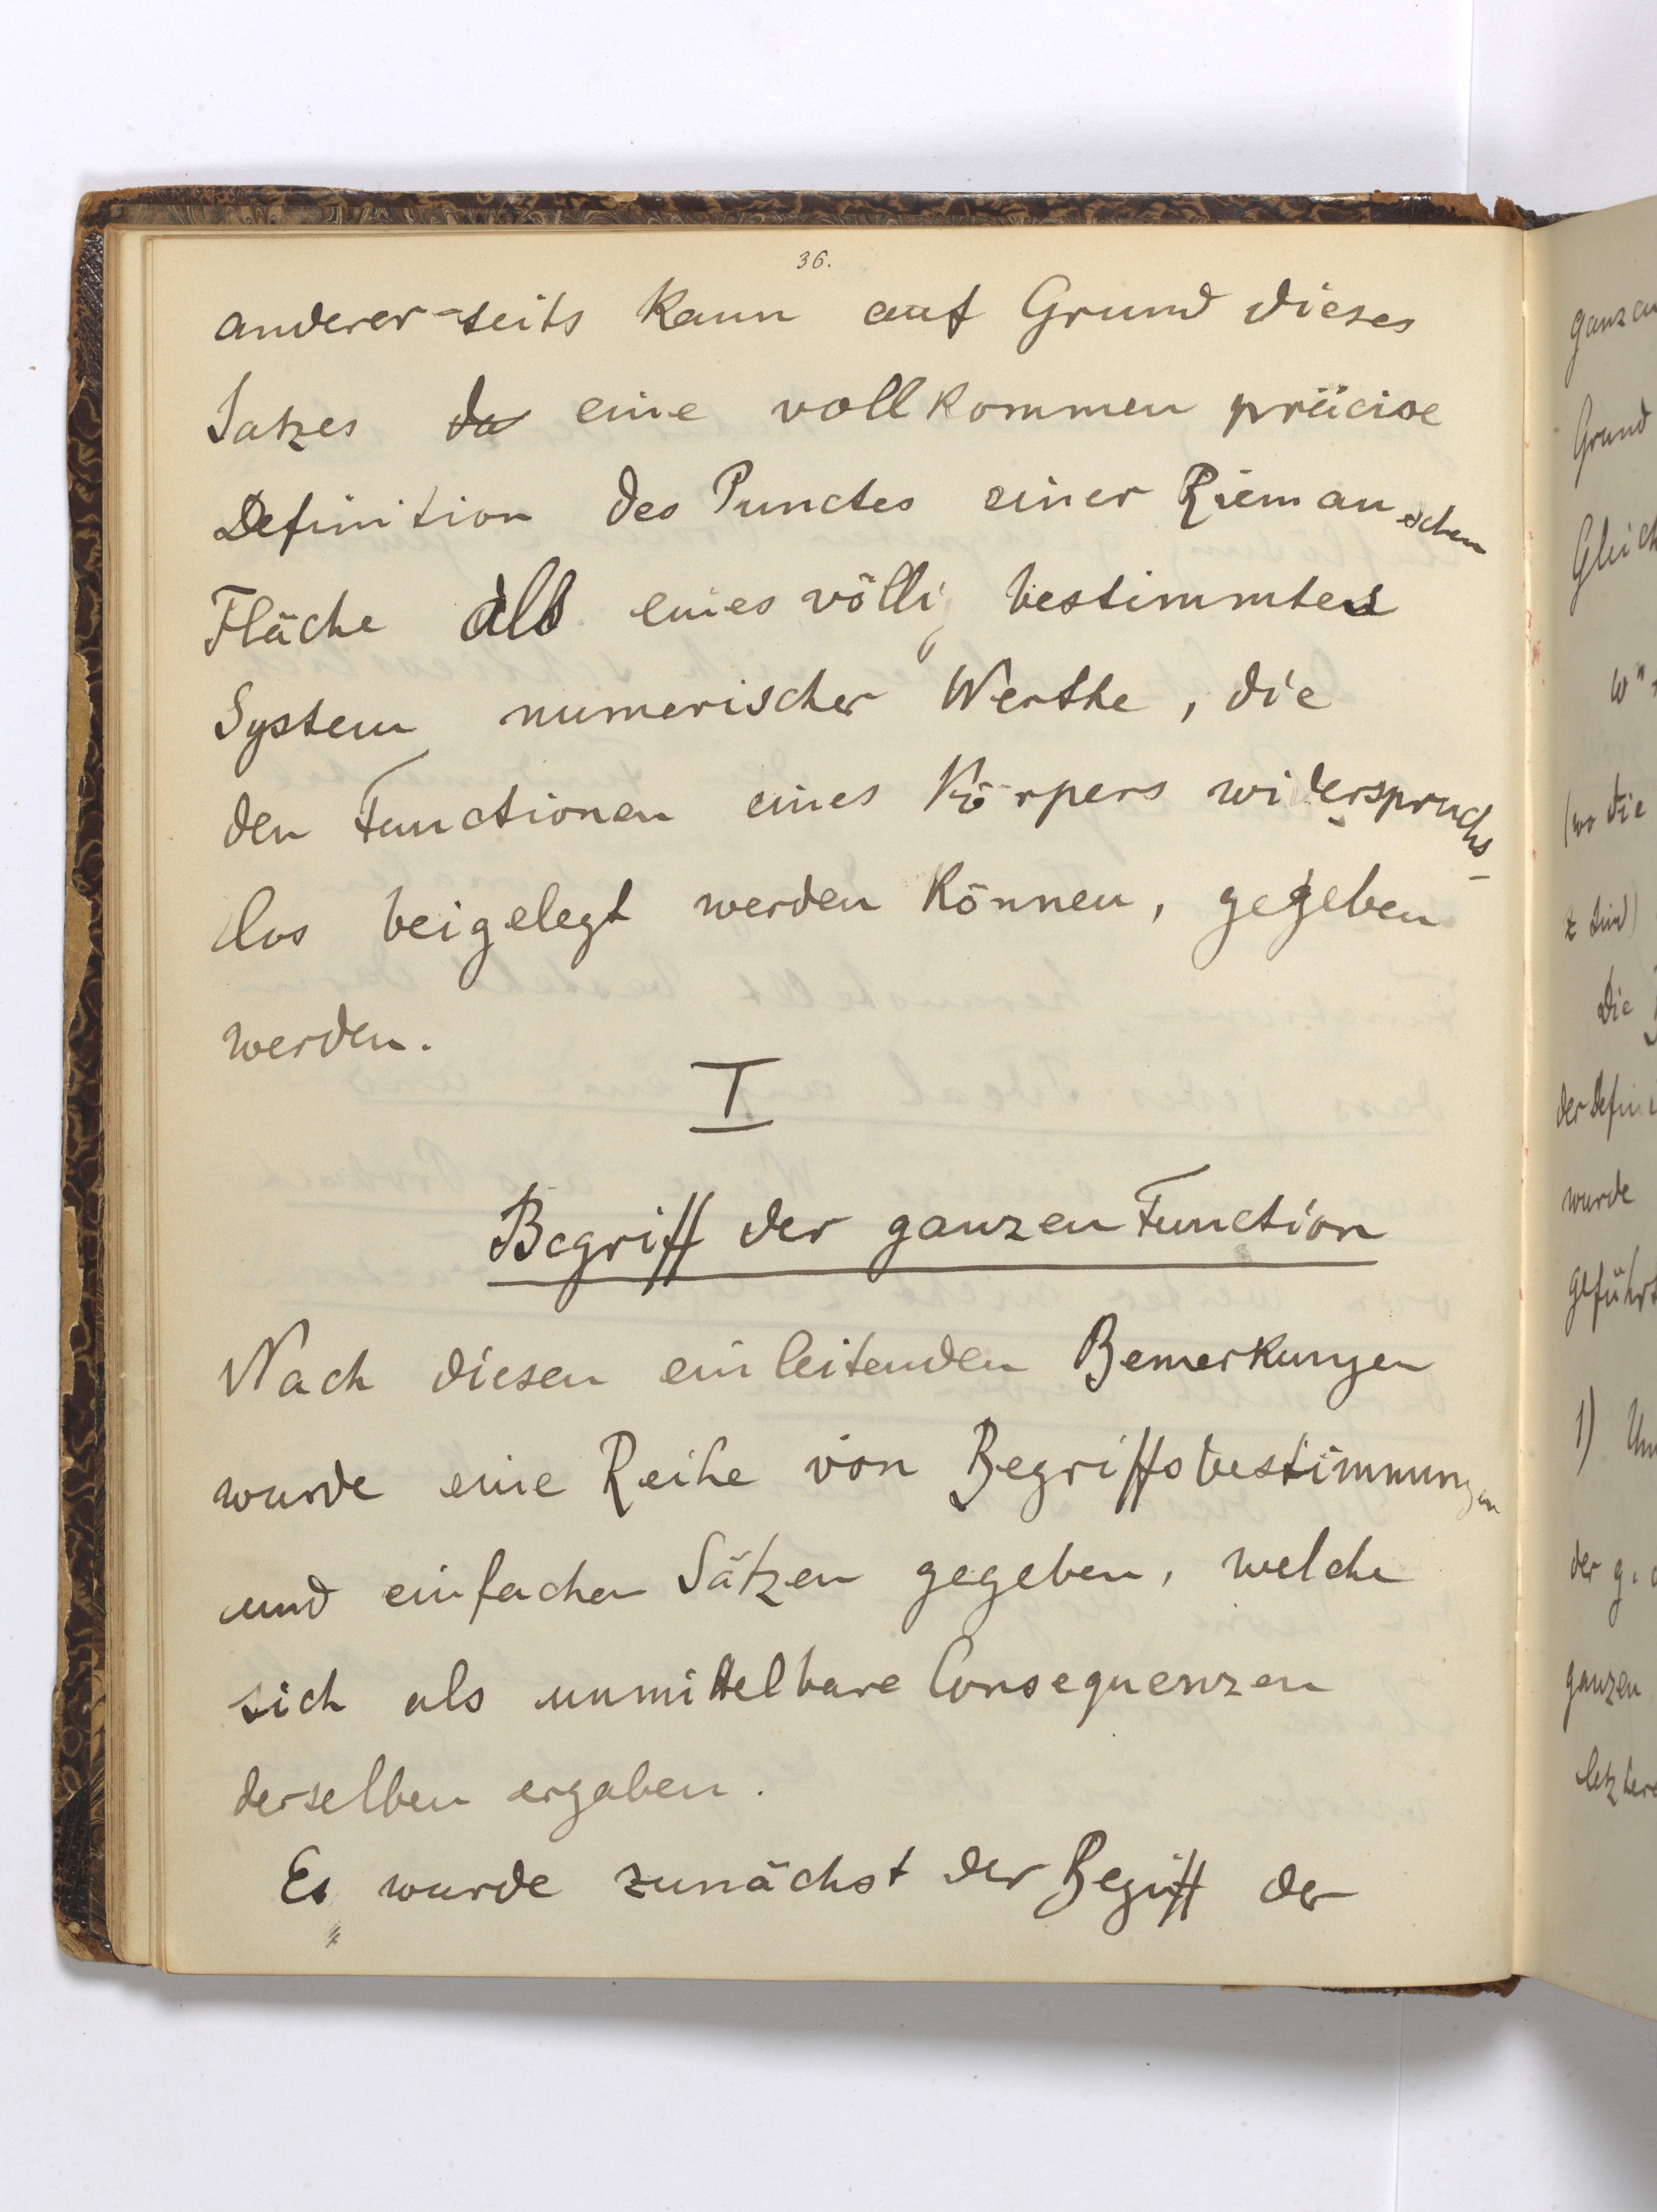 36.
anderer-seits kann auf Grund dieses
Satzes da eine vollkommen präcise
Definition des Punctes einer Riemanschen
Fläche als eines völlig bestimmtes
System numerischer Werthe, die
den Functionen eines Körpers widerspruchs-
los beigelegt werden können, gegeben
werden.
I
Begriff der ganzen Function
Nach diesen einleitenden Bemerkungen
wurde eine Reihe von Begriffsbestimmungen
und einfachen Sätzen gegeben, welche
sich als unmittelbare Consequenzen
derselben ergaben.
Es wurde zunächst der Begriff der
ganzen
Grund
wn
(wo die
z sind)
Die
der Defini
wurde
geführt
1)
der g.
ganzen